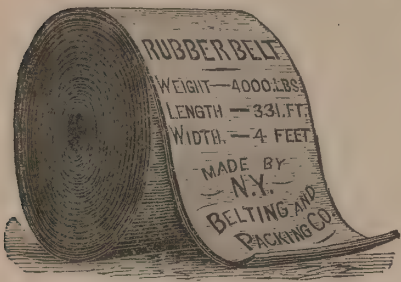 RUBBER BELT
WEIGHT—4000.LBS.
LENGTH — 331.FT.
WIDTH. — 4 FEET.
MADE BY
N.Y.
BELTING AND
PACKING CO.